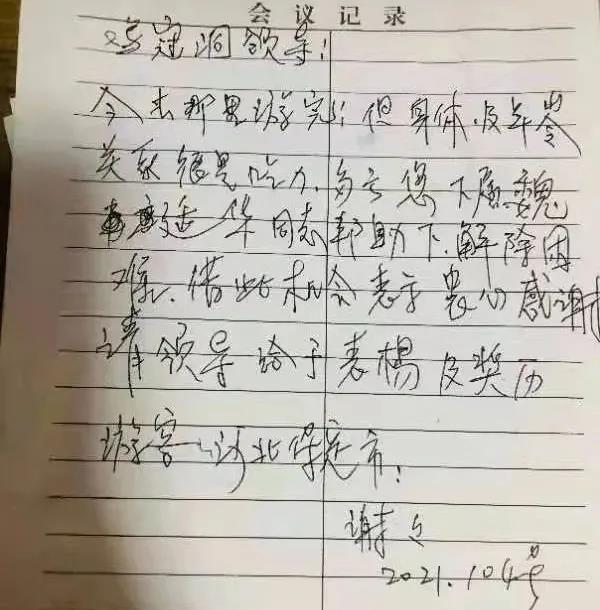 会议记录
鸡冠洞领导：
今去那里游完；但身体.及年岁
关系很是吃力.多亏您下属魏
廷华同志帮助下.解除困
难、借此机会表示衷心感谢
请领导给于表杨及奖历
游客：河北保定市：
谢
2021.10.4号